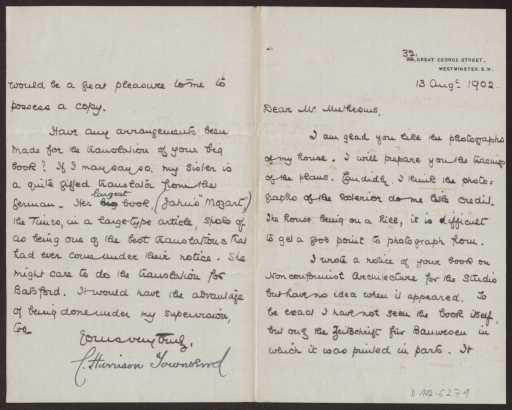 39. GREAT GEORGE STREET,
WESTMINSTER. S.W.
13 Augt. 1902.
Dear Mr. Muthesius,
I am glad you like the photographs
of my house. I will prepare you the tracings
of the plans. Candidly I think the photo-
graphs of the exterior do me little credit.
The house being on a hill, it is difficult
to get a good point to photograph from.
I wrote a notice of your book on
Nonconformist Architecture for the Studio
but have no idea when it appeared. To
be exact I have not seen the book itself,
but only the Zeitschrift für Bauwesen in
which it was printed in parts. It
would be a great pleasure to me to
possess a copy.
Have any arrangements been
made for the translation of your big
book? If I may say so, my sister is
a quite gifted translator from the
German. Her big largest book, (Jahn's Mozart)
the Times, in a large-type article, spoke of
as being one of the best translations that
had ever come under their notice. She
might care to do the translation for
Batsford. It would have the advantage
of being done under my supervision,
too
Yours very truly,
C. Harrison Townsend